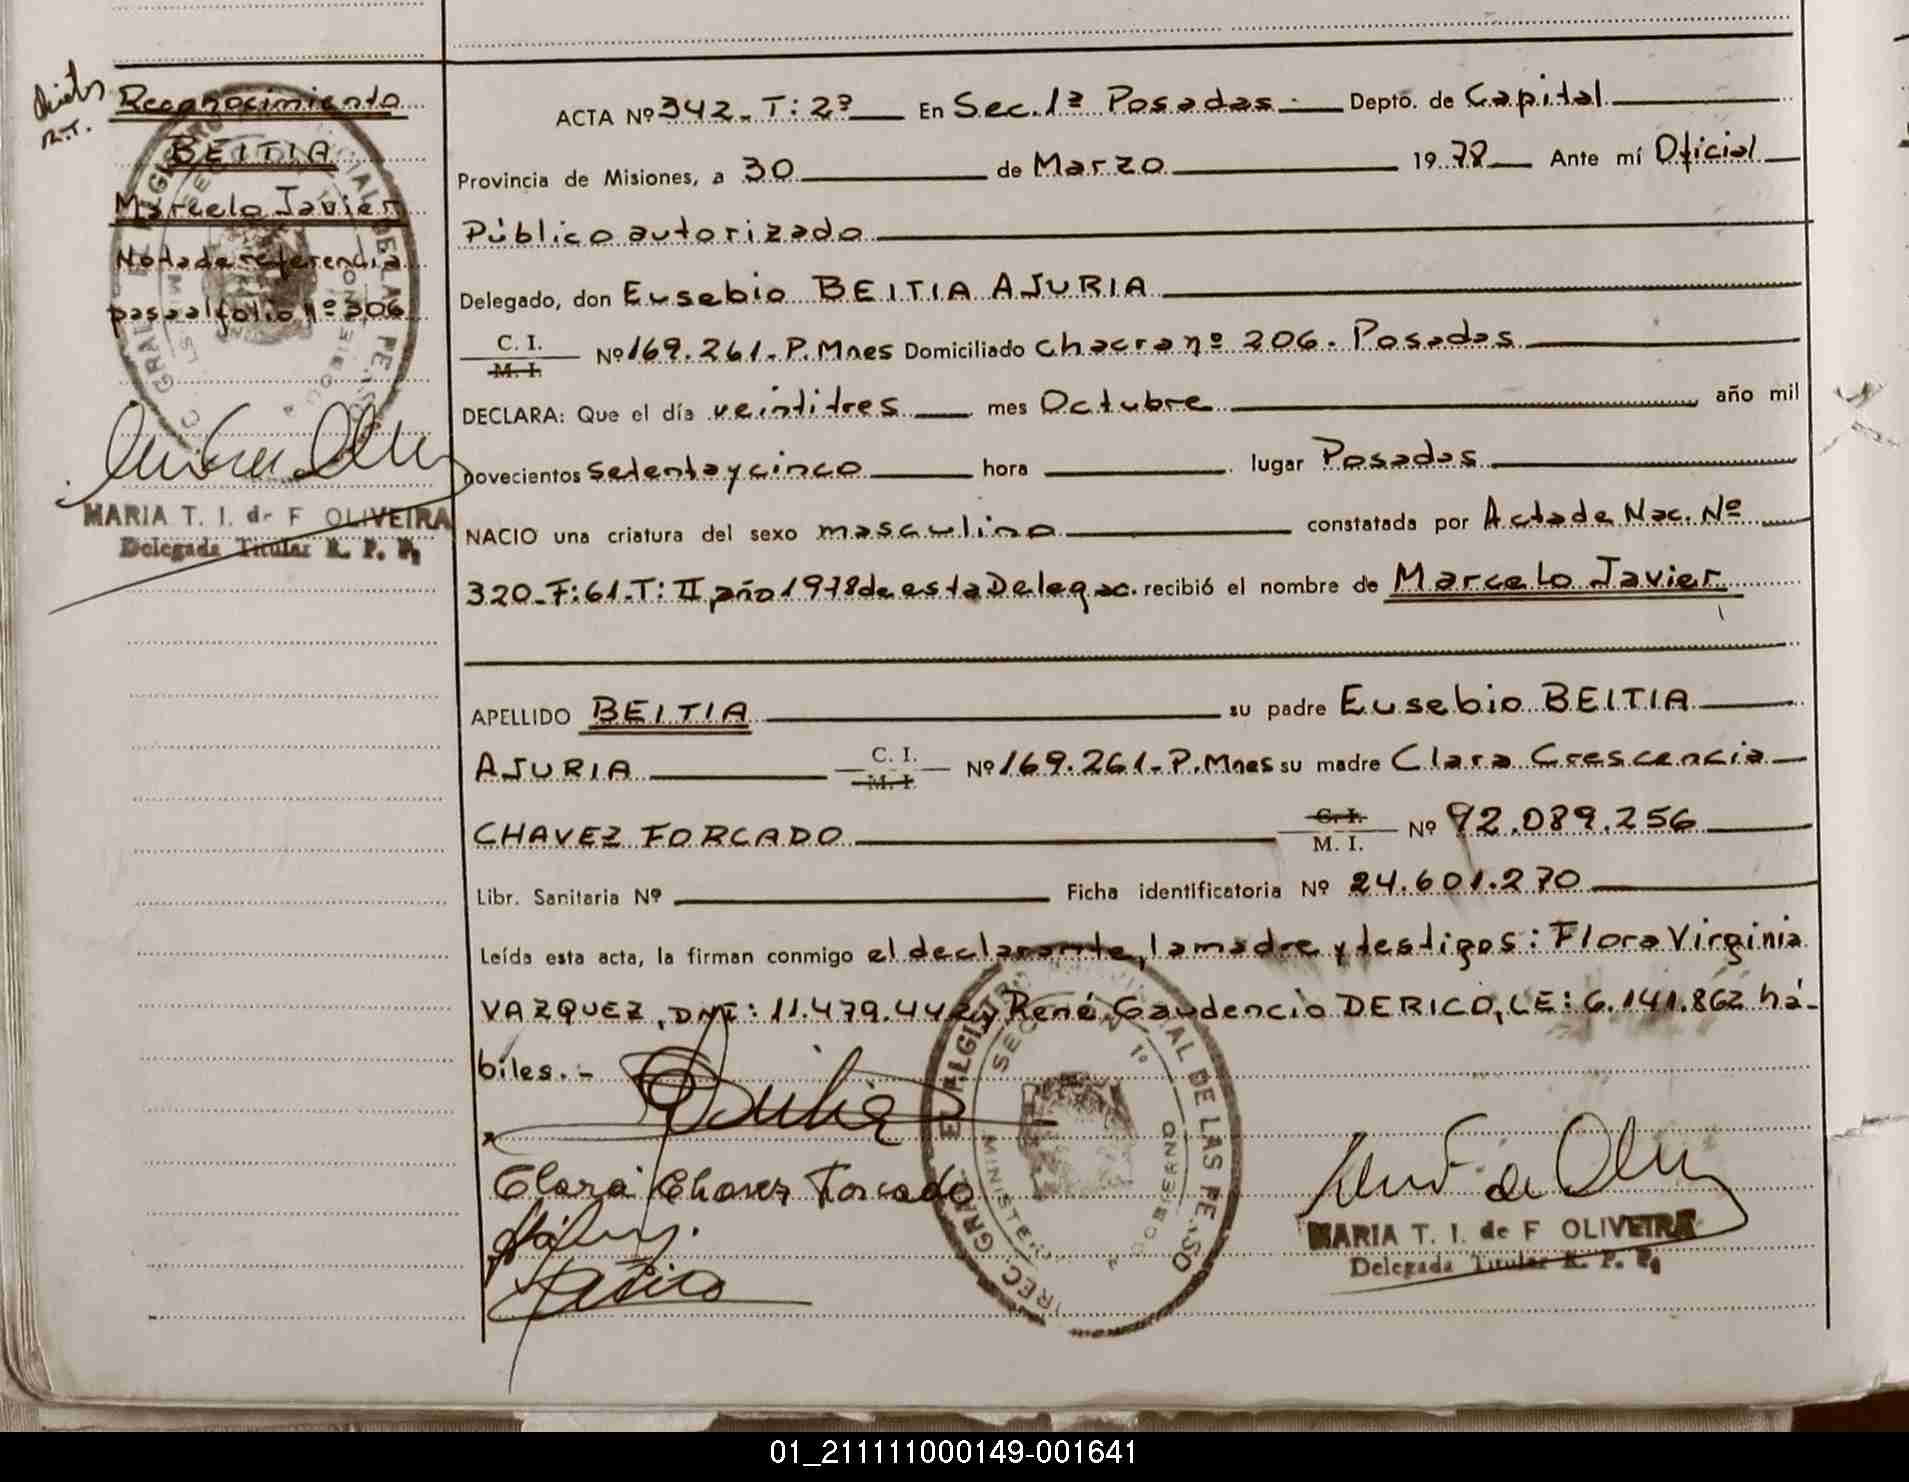 Reconocimiento
BEITIA
Marcelo Javier
Nota de referencia
pasa al folio nº 306
MARIA T. I. de F OLIVEIRA
Delegada Titular R. P. P.
ACTA Nº 342_ T: 2º En Sec. 1ª Posadas Depto. de Capital
Provincia de Misiones, a 30 de Marzo 1978 Ante mí Oficial
Público autorizado
Delegado, don Eusebio BEITIA AJURIA
C. I.
M. I.
Nº 169.261_ P. Mnes Domiciliado chacra nº 206. Posadas
DECLARA: Que el día veintitres mes Octubre año mil
novecientos setenta y cinco hora lugar Posadas
NACIO una criatura del sexo masculino constatada por Acta de Nac. Nº
320_ F: 61_ T: II año 1978 de esta Delegac. recibió el nombre de Marcelo Javier
APELLIDO BEITIA su padre Eusebio BEITIA
AJURIA C. I. M. I. Nº 169.261_ P. Mnes su madre Clara Crescencia
CHAVEZ FORCADO C. I. M. I. Nº 92.089.256
Libr. Sanitaria Nº Ficha identificatoria Nº 24.601.270
Leída esta acta, la firman conmigo el declarante, la madre y testigos: Flora Virginia
VAZQUEZ, DNI: 11.479.442 y René Gaudencio DERICO, LE: 6.141.862 há-
biles.-
Clara Chavez Forcado
SECCION 1º
MINISTERIO GOBIERNO
MARIA T. I. de F OLIVEIRA
Delegada Titular R. P. P.
01_211111000149-001641